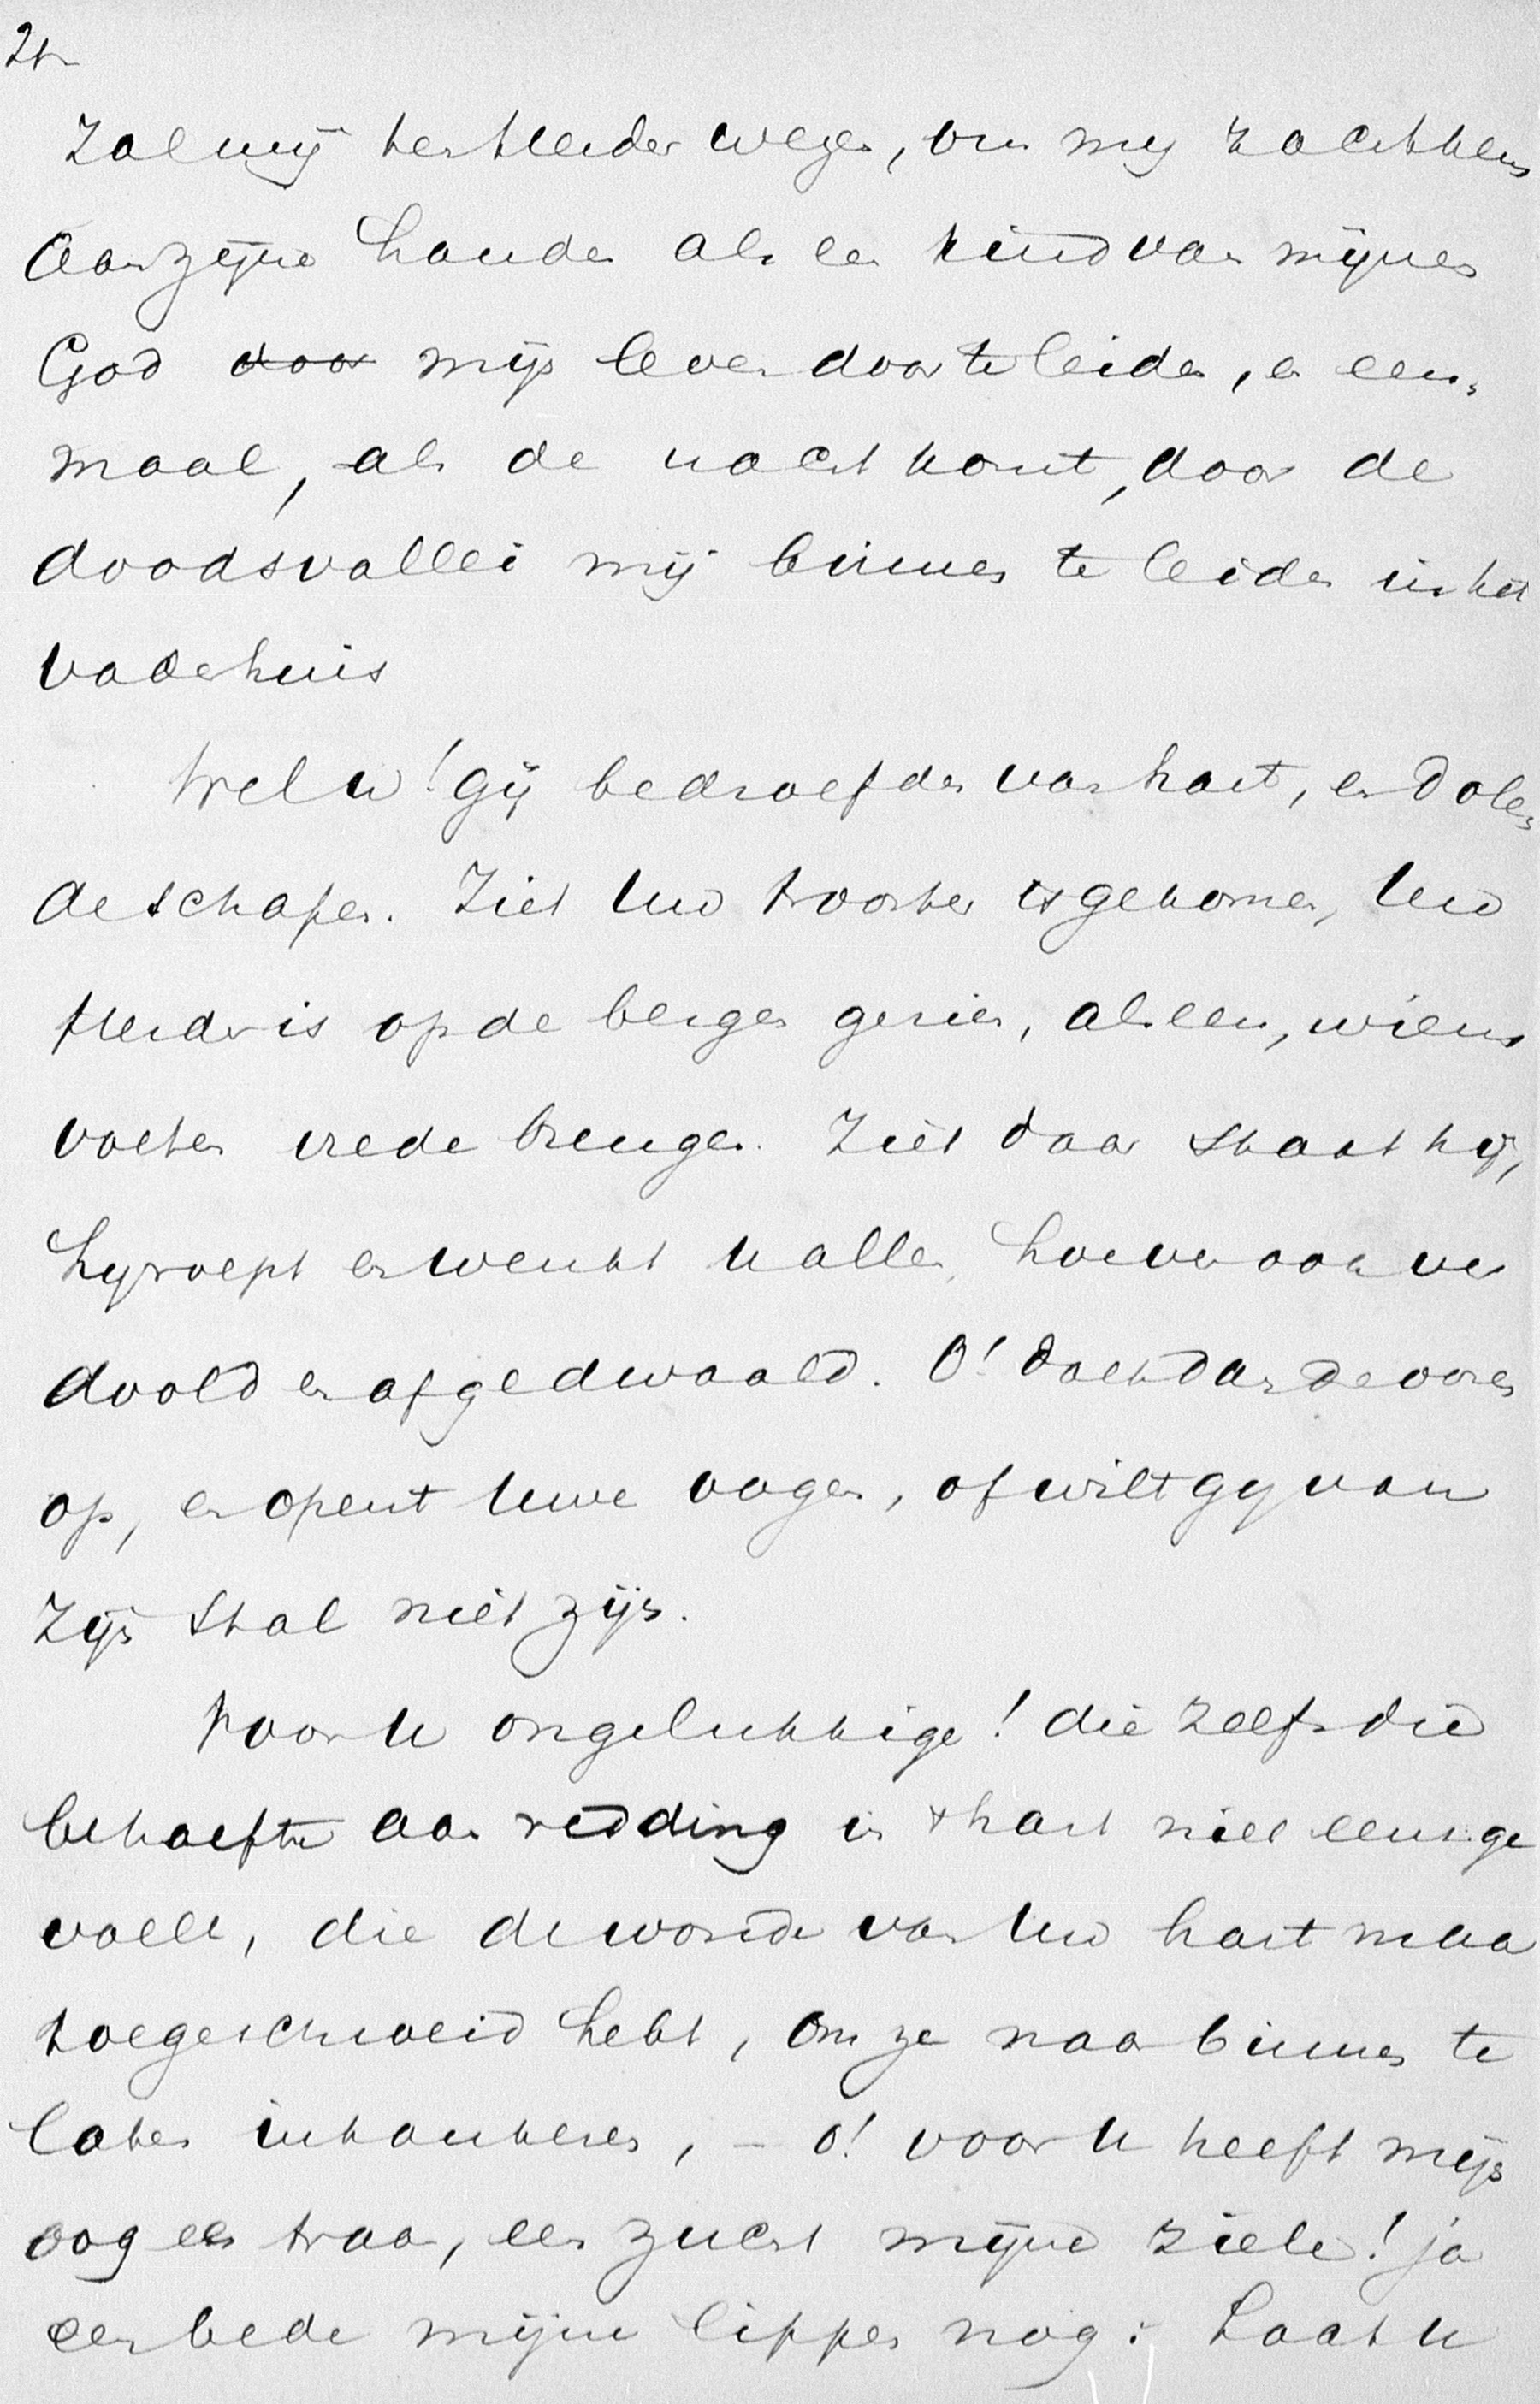 21
Zal mij ten Herder wezen, om mij zachtkens
aan zijne handen als een kind van mijnen
God door mijn leven door te leiden, en een-
maal, als de nacht komt, door de
doodsvallei mij binnen te leiden in het
vaderhuis
Wel u! gij bedroefden van hart, en dolen
de schapen. Ziet Uw trooster is gekomen, Uw
Herder is op de bergen gezien, als een, wiens
voeten vrede brengen. Ziet daar staat hij,
hij roept en wenkt u allen, hoever ook ver
doold en afgedwaald. O! doet dan de ooren
op, en opent Uwe oogen, of wilt gij van
Zijn stal niet zijn.
Voor U ongelukkige! die zelfs die
behoefte aan redding in 't hart niet eens ge
voelt, die de wonde van Uw hart maar
toegeschroeid hebt, om ze naar binnen te
laten inkankeren, – o! voor U heeft mijn
oog een traan, een zucht mijne ziele! ja
een bede mijne lippen nog: Laat U